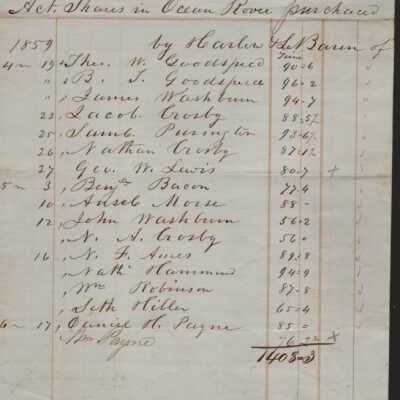 Act. Shares in Ocean Rover purchased
1859 by Harlow & LeBaron of
Time
4 m 19, Theo. W. Goodspeed 90-6
" B. T. Goodspeed 96-2
" James Washburn 94-7
22, Jacob Crosby 88-57
25, Samb. Purington 93-67
26, Nathan Crosby 87-12
27 Geo. W. Lewis 80-7 +
5 m 3, Benj. Bacon 77-4
10, Anseb Morse 88-
12, John Washburn 56-2
, N. A. Crosby 56-
16, N. F. Ames 89-8
, Nath Hammond 94-9
, Wm Robinson 87-8
, Seth Hiller 65-4
6 m 17, Daniel H. Payne 85=
Payne 76- x
1408-3